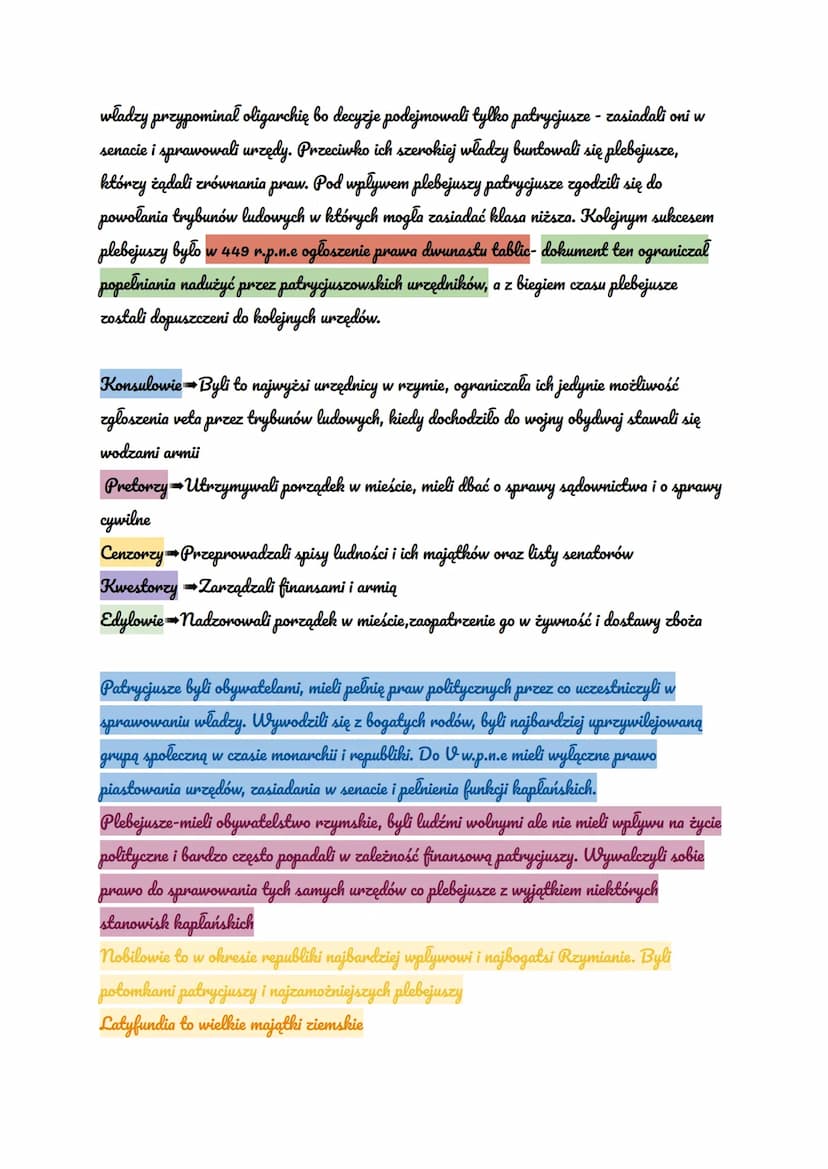 władzy przypominał oligarchię bo decyzje podejmowali tylko patrycjusze - zasiadali oni w
senacie i sprawowali urzędy. Przeciwko ich szerokiej władzy buntowali się plebejusze,
którzy żądali zrównania praw. Pod wpływem plebejuszy patrycjusze zgodzili się do
powołania trybunów ludowych w których mogła zasiadać klasa niższa. Kolejnym sukcesem
plebejuszy było w 449 r.p.n.e ogłoszenie prawa dwunastu tablic- dokument ten ograniczał
popełniania nadużyć przez patrycjuszowskich urzędników, a z biegiem czasu plebejusze
zostali dopuszczeni do kolejnych urzędów.
Konsulowie➠Byli to najwyżsi urzędnicy w rzymie, ograniczała ich jedynie możliwość
zgłoszenia veta przez trybunów ludowych, kiedy dochodziło do wojny obydwaj stawali się
wodzami armii
Pretorzy➠Utrzymywali porządek w mieście, mieli dbać o sprawy sądownictwa i o sprawy
cywilne
Cenzorzy➠Przeprowadzali spisy ludności i ich majątków oraz listy senatorów
Kwestorzy ➠Zarządzali finansami i armią
Edylowie➠Nadzorowali porządek w mieście,zaopatrzenie go w żywność i dostawy zboża
Patrycjusze byli obywatelami, mieli pełnię praw politycznych przez co uczestniczyli w
sprawowaniu władzy. Wywodzili się z bogatych rodów, byli najbardziej uprzywilejowaną
grupą społeczną w czasie monarchii i republiki. Do V w.p.n.e mieli wyłączne prawo
piastowania urzędów, zasiadania w senacie i pełnienia funkcji kapłańskich.
Plebejusze-mieli obywatelstwo rzymskie, byli ludźmi wolnymi ale nie mieli wpływu na życie
polityczne i bardzo często popadali w zależność finansową patrycjuszy. Wywalczyli sobie
prawo do sprawowania tych samych urzędów co plebejusze z wyjątkiem niektórych
stanowisk kapłańskich
Nobilowie to w okresie republiki najbardziej wpływowi i najbogatsi Rzymianie. Byli
potomkami patrycjuszy i najzamożniejszych plebejuszy
Latyfundia to wielkie majątki ziemskie